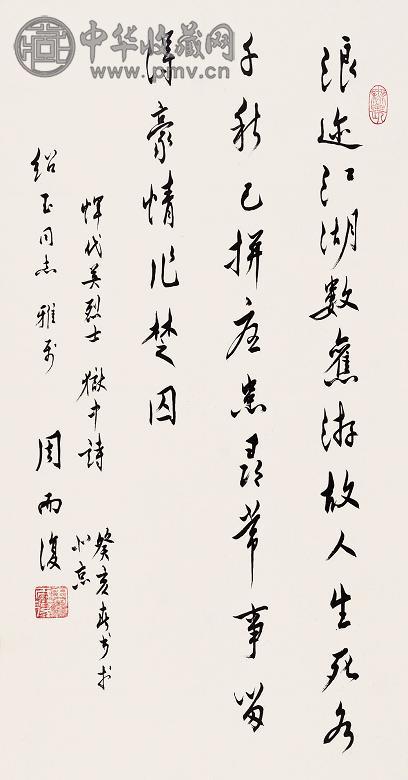 中华收藏网
www.pmv.cn
浪迹江湖數舊游故人生死各
千秋已拼憂患尋常事留
得豪情作楚囚
惲代英烈士 獄中詩
紹玉同志雅屬
周而復
癸亥春書於
北京